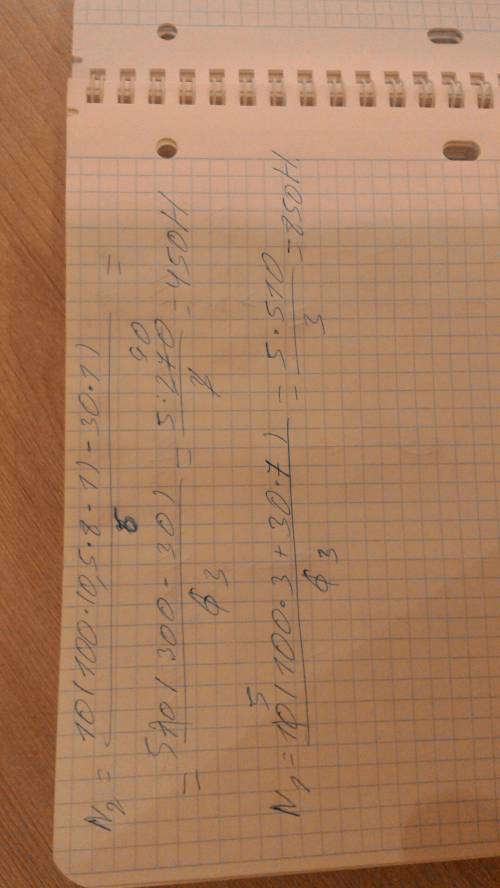 N₂ = 10(100·(0,5·8-1)-30·1) / 6 =
= 5 10(300-30) / 6 3 = 5·270 90 / 3 = 450H
N₁ = 5 10(100·3+30·7) / 6 3 = 5·510 / 3 = 850H